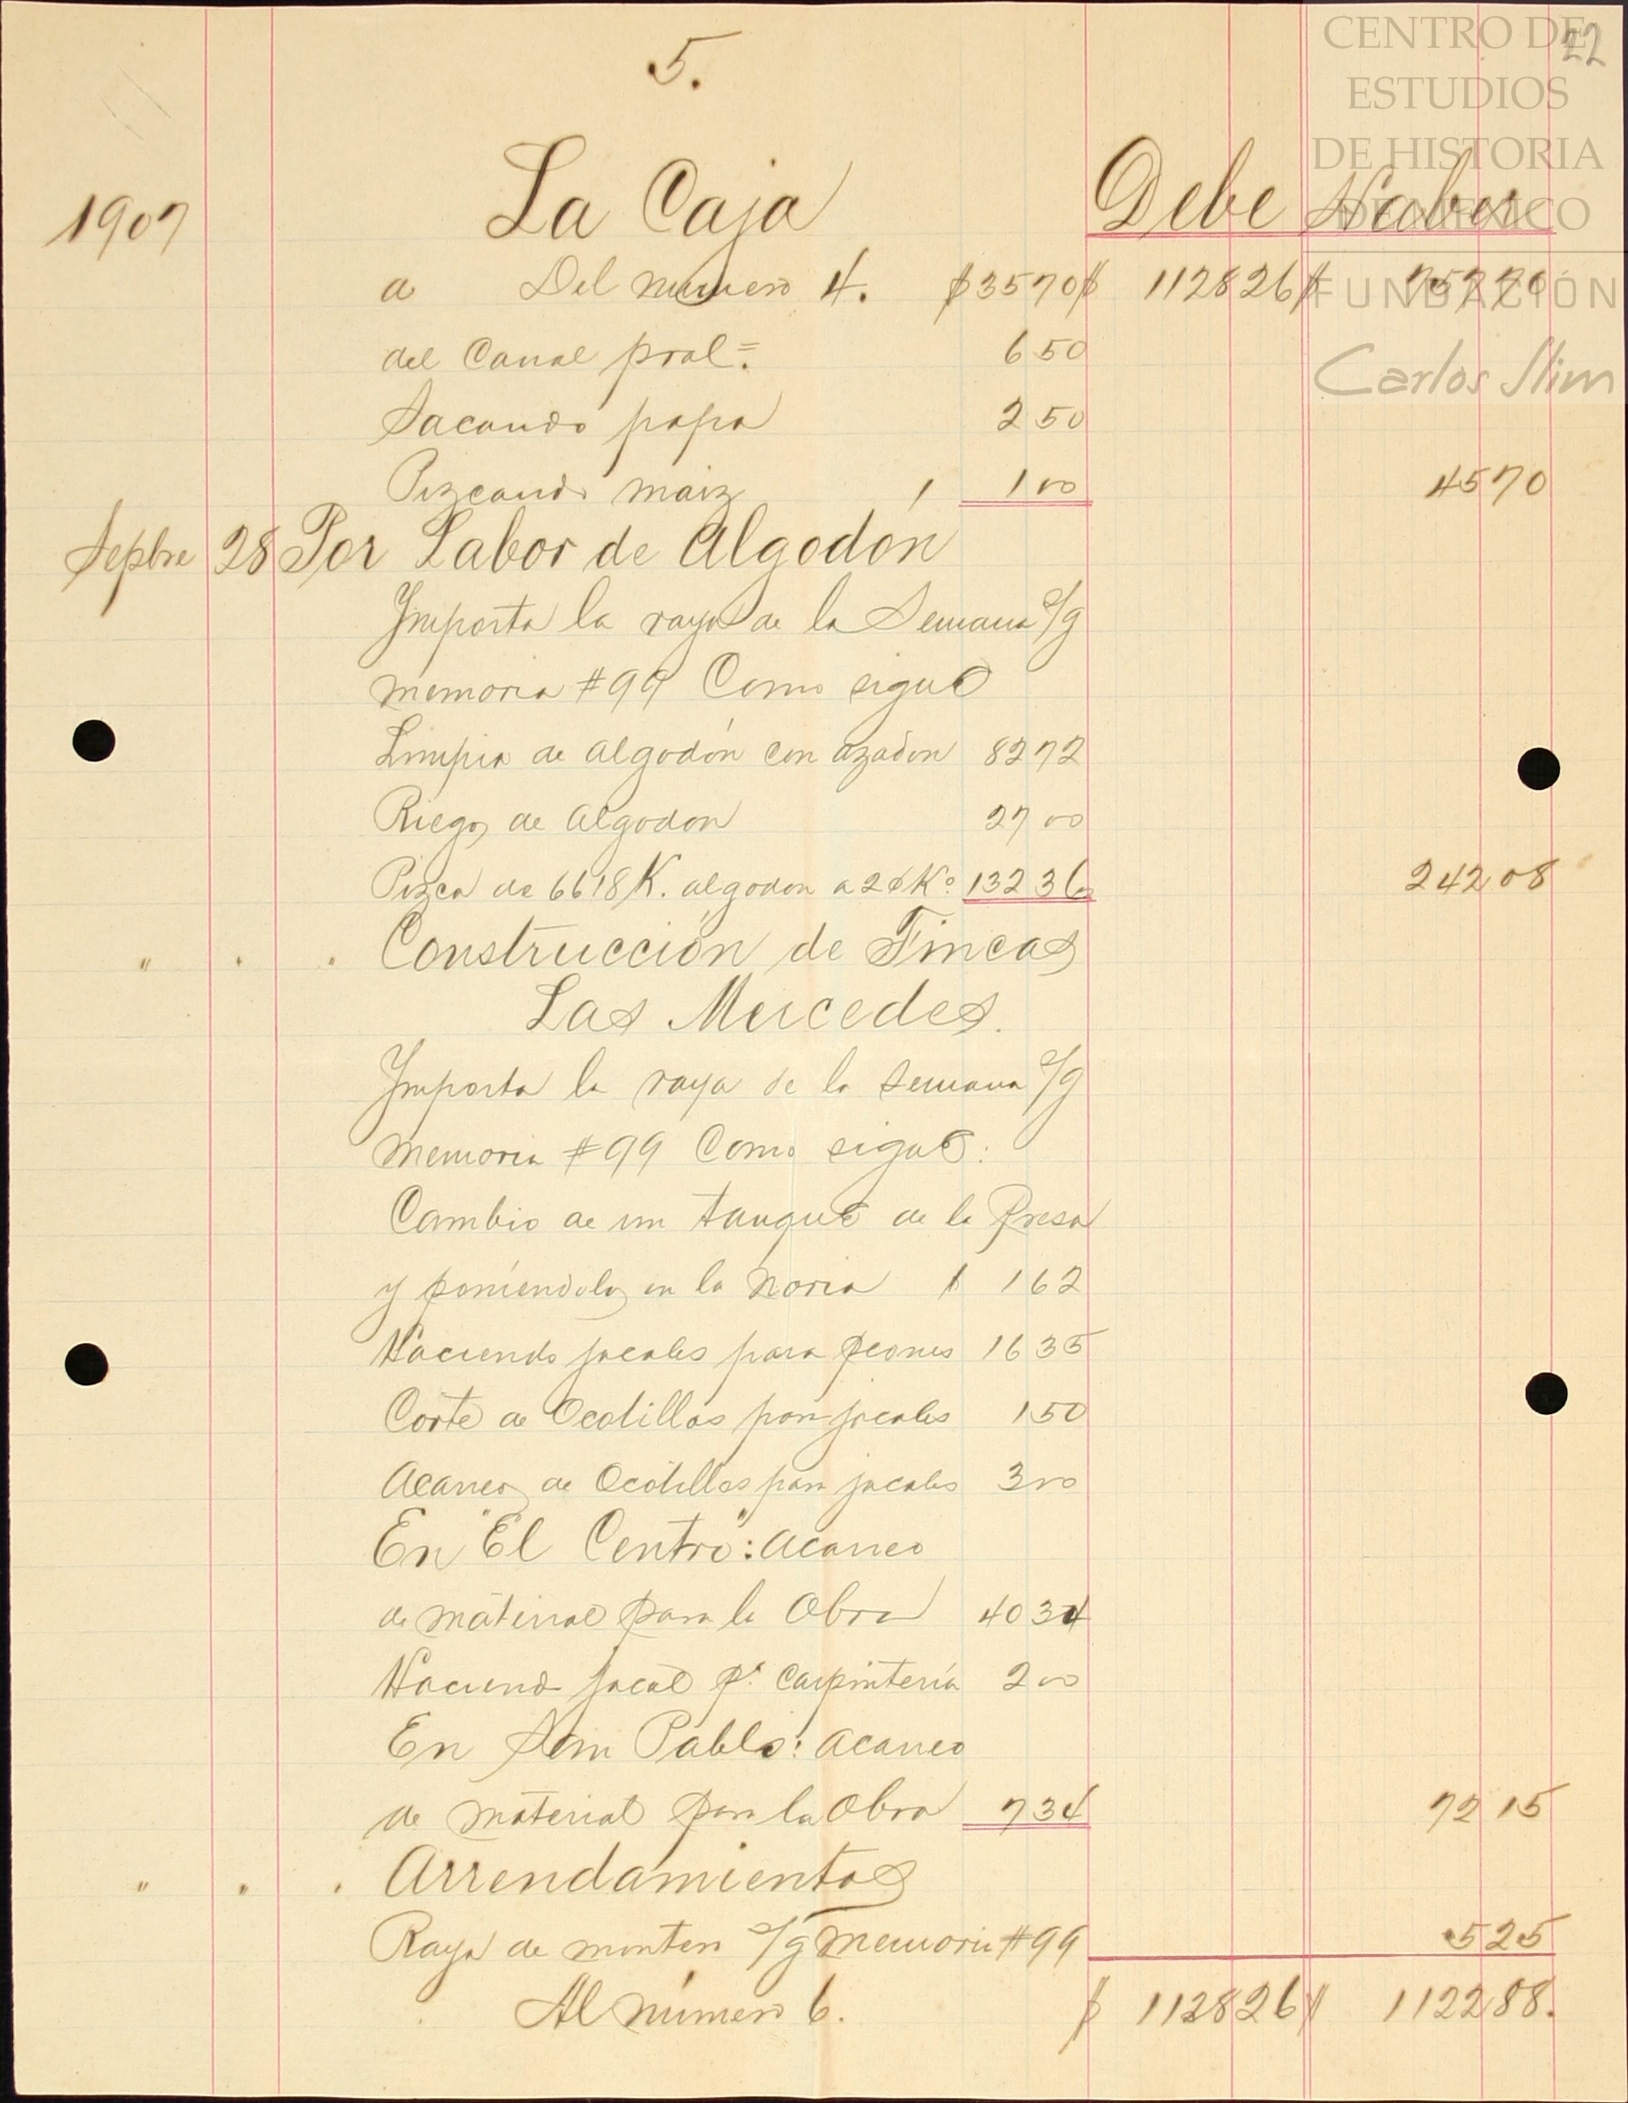 5.
22
CENTRO DE
ESTUDIOS
DE HISTORIA
DE MÉXICO
FUNDACIÓN
Carlos Slim
1907 La Caja Debe Haber
a Del numero 4. $35 70 $ 1128 26 $ 757 70
del Canal pral=. 6 50
Sacando papa 2 50
Pizcando maiz 1 00 45 70
Sepbre 28 Por Labor de Algodón
Importa la raya de la Semana s/g
memoria #99 Como sigue
Limpia de algodón con azadon 82 72
Riego de algodon 27 00
Pizca de 6618 K. algodon a 2¢ Ko 132 36 242 08
" . . Construcción de Fincas
Las Mercedes.
Importa la raya de la semana s/g
memoria #99 Como sigue:
Cambio de un tanque de la Presa
y poniendolo en la Noria $ 1 62
Haciendo jacales para peones 16 35
Corte de Ocotillos para jacales 1 50
Acarreo de Ocotillos para jacales 3 00
En "El Centro": acarreo
de material para la Obra 40 34
Haciend jacal pa. Carpintería 2 00
En San Pablo: acarreo
de material para la Obra 7 34 72 15
" . . Arrendamientos
Raya de s/g memoria #99 5 25
Al número 6. $ 1128 26 $ 1122 88.